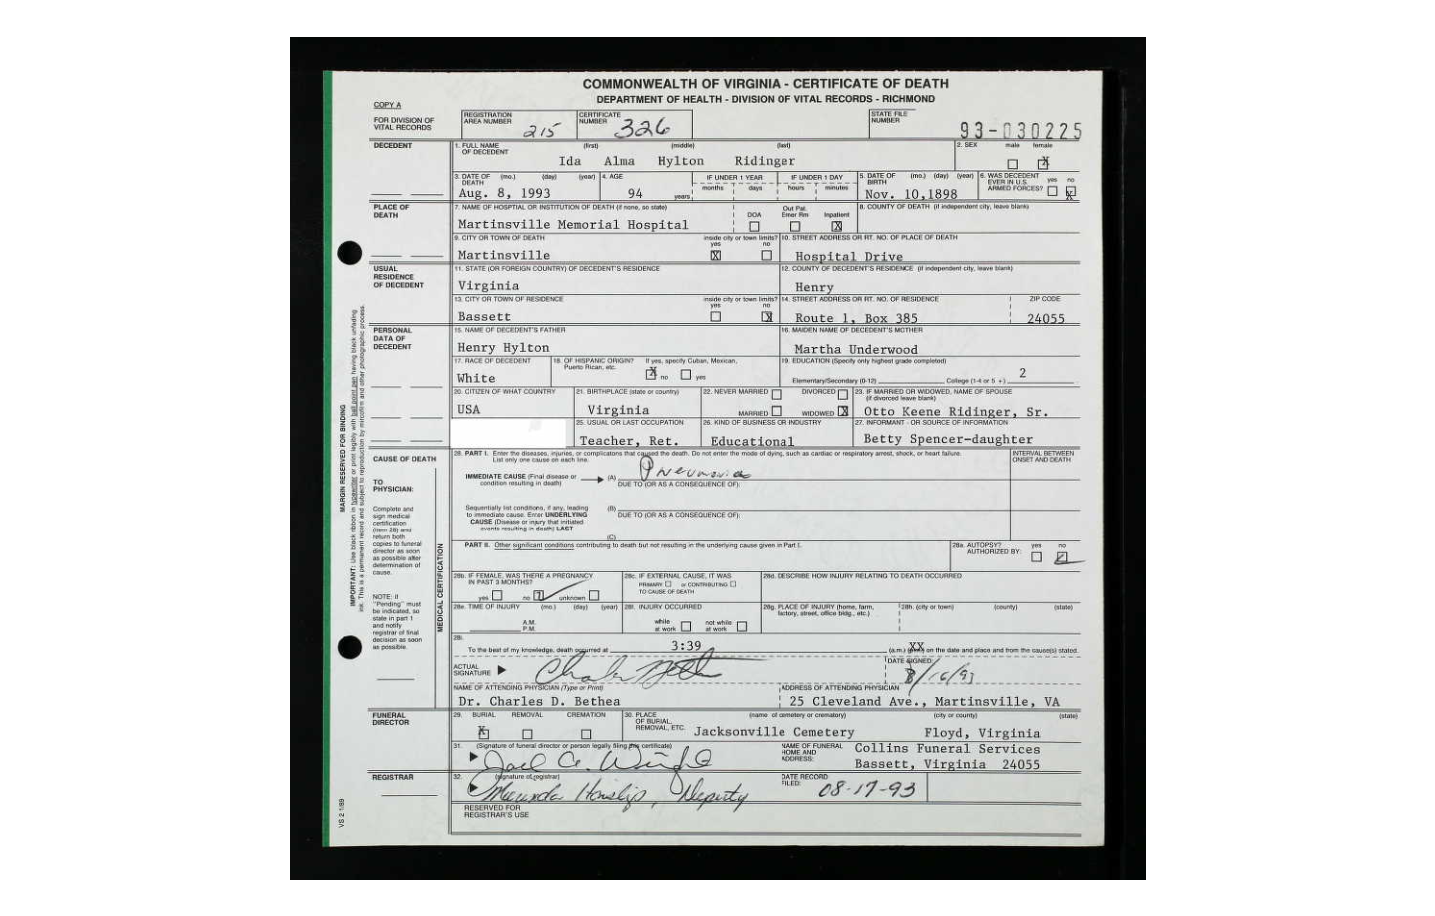 COMMONWEALTH OF VIRGINIA - CERTIFICATE OF DEATH
DEPARTMENT OF HEALTH - DIVISION OF VITAL RECORDS - RICHMOND
COPY A
FOR DIVISION OF VITAL RECORDS
REGISTRATION AREA NUMBER 215 CERTIFICATE NUMBER 326 STATE FILE NUMBER 93-030225
DECEDENT
1. FULL NAME OF DECEDENT (first) (middle) (last) 2. SEX male female
Ida Alma Hylton Ridinger X
3. DATE OF DEATH (mo.) (day) (year) 4. AGE IF UNDER 1 YEAR months days IF UNDER 1 DAY hours minutes 5. DATE OF BIRTH (mo.) (day) (year) 6. WAS DECEDENT EVER IN U.S. ARMED FORCES? yes no
Aug. 8, 1993 94 years Nov. 10,1898 X
PLACE OF DEATH
7. NAME OF HOSPITAL OR INSTITUTION OF DEATH (if none, so state) DOA Out Pat. Emer Rm Inpatient 8. COUNTY OF DEATH (if independent city, leave blank)
Martinsville Memorial Hospital X
9. CITY OR TOWN OF DEATH inside city or town limits? yes no 10. STREET ADDRESS OR RT. NO. OF PLACE OF DEATH
Martinsville X Hospital Drive
USUAL RESIDENCE OF DECEDENT
11. STATE (OR FOREIGN COUNTRY) OF DECEDENT'S RESIDENCE 12. COUNTY OF DECEDENT'S RESIDENCE (if independent city, leave blank)
Virginia Henry
13. CITY OR TOWN OF RESIDENCE inside city or town limits? yes no 14. STREET ADDRESS OR RT. NO. OF RESIDENCE ZIP CODE
Bassett X Route 1, Box 385 24055
PERSONAL DATA OF DECEDENT
15. NAME OF DECEDENT'S FATHER 16. MAIDEN NAME OF DECEDENT'S MOTHER
Henry Hylton Martha Underwood
17. RACE OF DECEDENT 18. OF HISPANIC ORIGIN? If yes, specify Cuban, Mexican, Puerto Rican, etc. 19. EDUCATION (Specify only highest grade completed)
White X no yes Elementary/Secondary (0-12) College (1-4 or 5 +) 2
20. CITIZEN OF WHAT COUNTRY 21. BIRTHPLACE (state or country) 22. NEVER MARRIED DIVORCED 23. IF MARRIED OR WIDOWED, NAME OF SPOUSE (if divorced leave blank)
USA Virginia MARRIED WIDOWED X Otto Keene Ridinger, Sr.
25. USUAL OR LAST OCCUPATION 26. KIND OF BUSINESS OR INDUSTRY 27. INFORMANT - OR SOURCE OF INFORMATION
Teacher, Ret. Educational Betty Spencer-daughter
CAUSE OF DEATH
TO PHYSICIAN:
Complete and sign medical certification (item 28) and return both copies to funeral director as soon as possible after determination of cause.
NOTE: If "Pending" must be indicated, so state in part 1 and notify registrar of final decision as soon as possible.
MEDICAL CERTIFICATION
28. PART I. Enter the diseases, injuries, or complications that caused the death. Do not enter the mode of dying, such as cardiac or respiratory arrest, shock, or heart failure. List only one cause on each line. INTERVAL BETWEEN ONSET AND DEATH
IMMEDIATE CAUSE (Final disease or condition resulting in death) (A) Pneumonia
DUE TO (OR AS A CONSEQUENCE OF):
Sequentially list conditions, if any, leading to immediate cause. Enter UNDERLYING CAUSE (Disease or injury that initiated events resulting in death) LAST (B)
DUE TO (OR AS A CONSEQUENCE OF):
(C)
PART II. Other significant conditions contributing to death but not resulting in the underlying cause given in Part I. 28a. AUTOPSY? AUTHORIZED BY: yes no
28b. IF FEMALE, WAS THERE A PREGNANCY IN PAST 3 MONTHS? yes no unknown 28c. IF EXTERNAL CAUSE, IT WAS PRIMARY or CONTRIBUTING TO CAUSE OF DEATH 28d. DESCRIBE HOW INJURY RELATING TO DEATH OCCURRED
28e. TIME OF INJURY (mo.) (day) (year) A.M. P.M. 28f. INJURY OCCURRED while at work not while at work 28g. PLACE OF INJURY (home, farm, factory, street, office bldg., etc.) 28h. (city or town) (county) (state)
28i. To the best of my knowledge, death occurred at 3:39 (a.m.) XX on the date and place and from the cause(s) stated.
ACTUAL SIGNATURE DATE SIGNED: 8/16/93
NAME OF ATTENDING PHYSICIAN (Type or Print) ADDRESS OF ATTENDING PHYSICIAN
Dr. Charles D. Bethea 25 Cleveland Ave., Martinsville, VA
FUNERAL DIRECTOR
29. BURIAL REMOVAL CREMATION 30. PLACE OF BURIAL, REMOVAL, ETC. (name of cemetery or crematory) (city or county) (state)
X Jacksonville Cemetery Floyd, Virginia
31. (Signature of funeral director or person legally filing this certificate) NAME OF FUNERAL HOME AND ADDRESS: Collins Funeral Services
Bassett, Virginia 24055
REGISTRAR
32. (signature of registrar) Deputy DATE RECORD FILED: 08-17-93
RESERVED FOR REGISTRAR'S USE
VS 2 1/89
MARGIN RESERVED FOR BINDING
IMPORTANT: Use black ribbon in typewriter or print legibly with ball point pen having black unfading ink. This is a permanent record and subject to reproduction by microfilm and other photographic process.